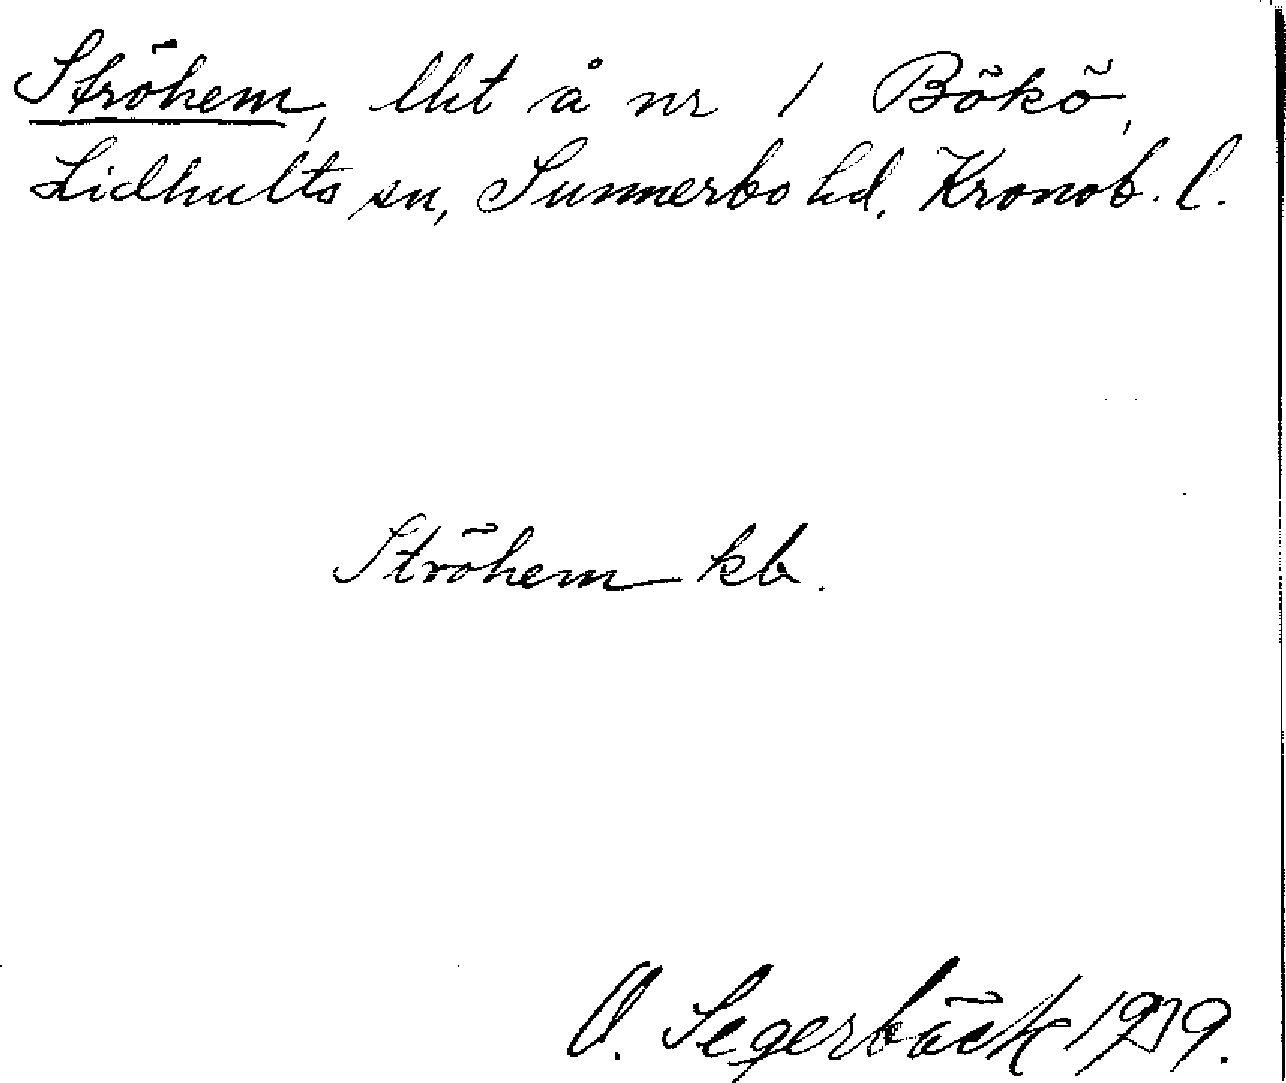 Ströhem, lht å nr 1 Bökö,
Lidhults sn, Sunnerbo hd. Kronob. l.
Ströhem kb.
O. Segerbäck 1939.